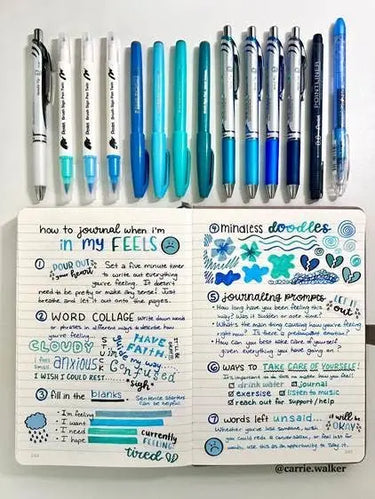 Pentel Brush Sign Pen Twin
Pentel Brush Sign Pen Twin
Pentel Brush Sign Pen Twin
POINTLINER
Pentel
how to journal when i'm
in my FEELS
① POUR OUT your heart
Set a five minute timer
to write out everything
you're feeling. It doesn't
need to be pretty or make any sense! Just
breathe and let it out onto the pages.
② WORD COLLAGE write down words
or phrases in different ways to describe how
you're feeling.
CLOUDY
STUCK
HAVE FAITH.
I feel small
anxious
Confused
I WISH I COULD REST
*sigh*
③ fill in the blanks
Sentence starters
can be helpful!
· I'm feeling
· I want
· I need
· I hope
currently
FEELING
tired
④ mindless doodles
⑤ journaling prompts
LET IT OUT
· How long have you been feeling this
way? Was it sudden or over time?
· What's the main thing causing how you're feeling
right now? Is there a predominant theme?
· How can you best take care of yourself
given everything you have going on?
⑥ WAYS to TAKE CARE OF YOURSELF!
drink water
journal
exercise
listen to music
reach out for support/help
⑦ words left unsaid...
it will be OKAY
Whether you've lost someone, wish
you could redo a conversation, or feel lost for
words, use this as an opportunity to say it.
@carrie.walker